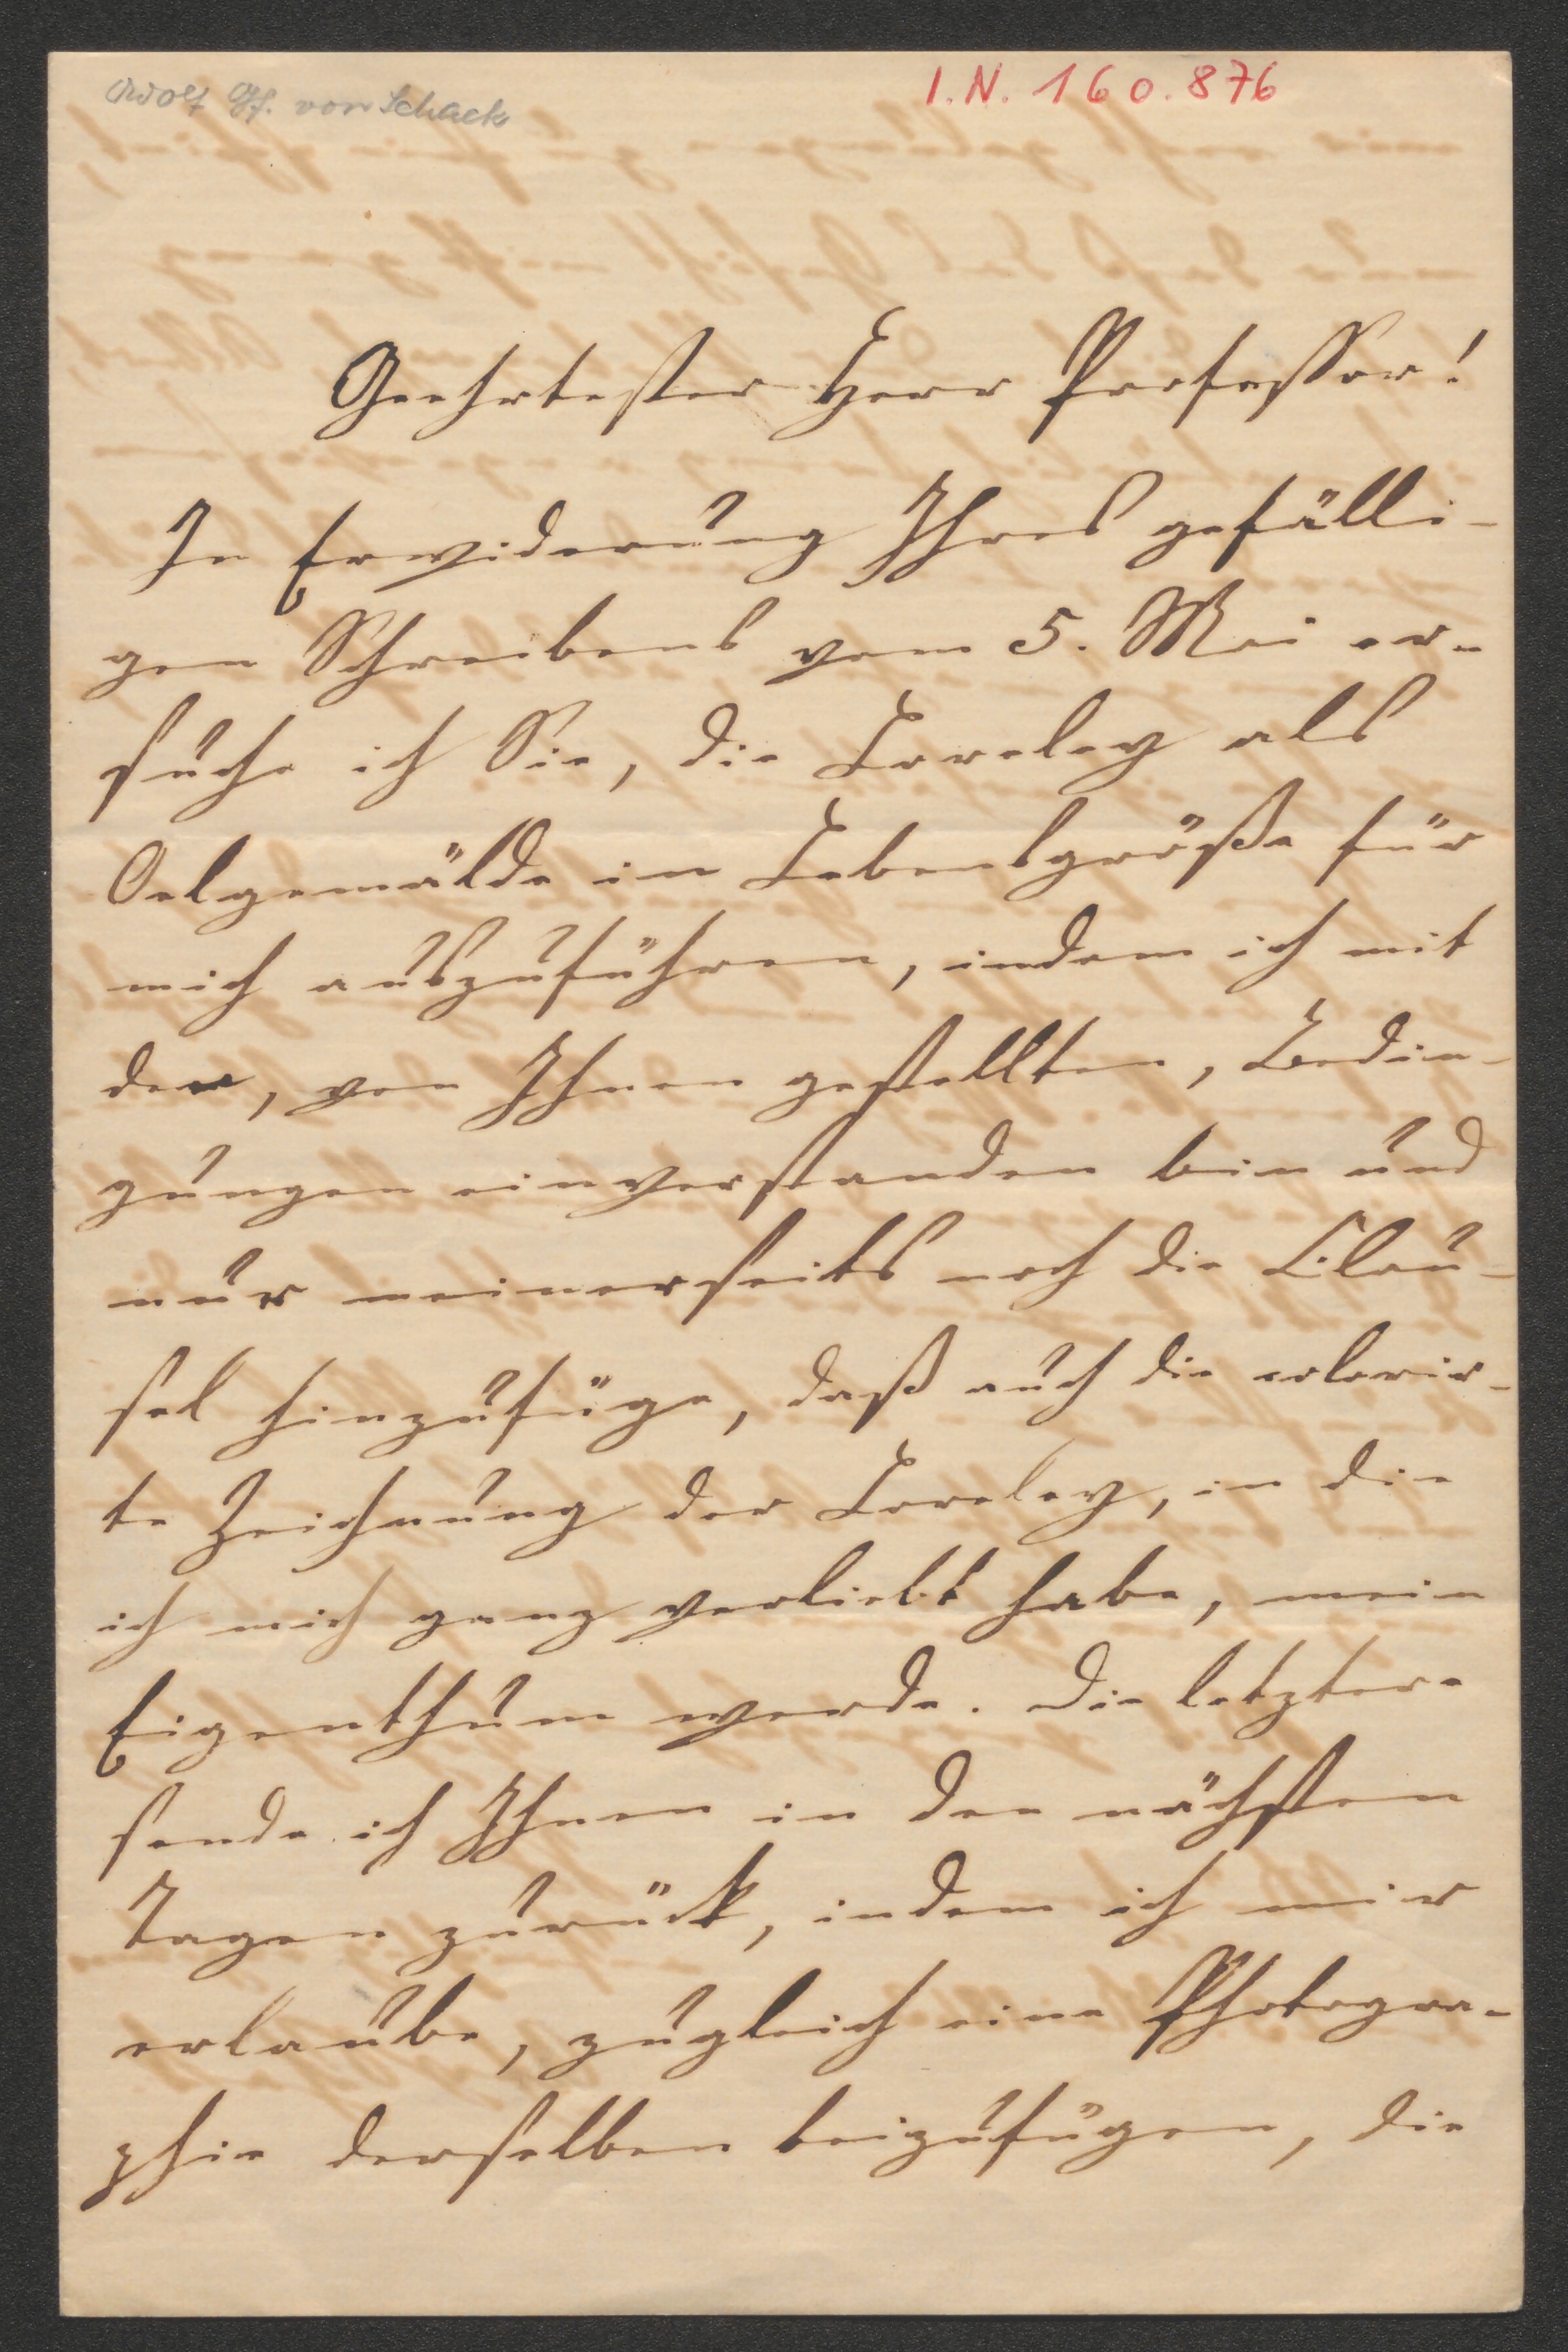 Adolf Gf. von Schack
I.N. 160.876
Geehrtester Herr Professor!
In Erwiderung Ihres gefälli-
gen Schreibens vom 5. Mai er-
suche ich Sie, die Loreley als
Oelgemälde in Lebensgröße für
mich auszuführen, indem ich mit
den, von Ihnen gestellten, Bedin-
gungen einverstanden bin und
nur meinerseits noch die Clau-
sel hinzufüge, daß auch die colorir-
te Zeichnung der Loreley, in die
ich mich ganz verliebt habe, mein
Eigenthum werde. Die letztere
sende ich Ihnen in den nächsten
Tagen zurück, indem ich mir
erlaube, zugleich eine Photogra-
phie derselben beizufügen, die